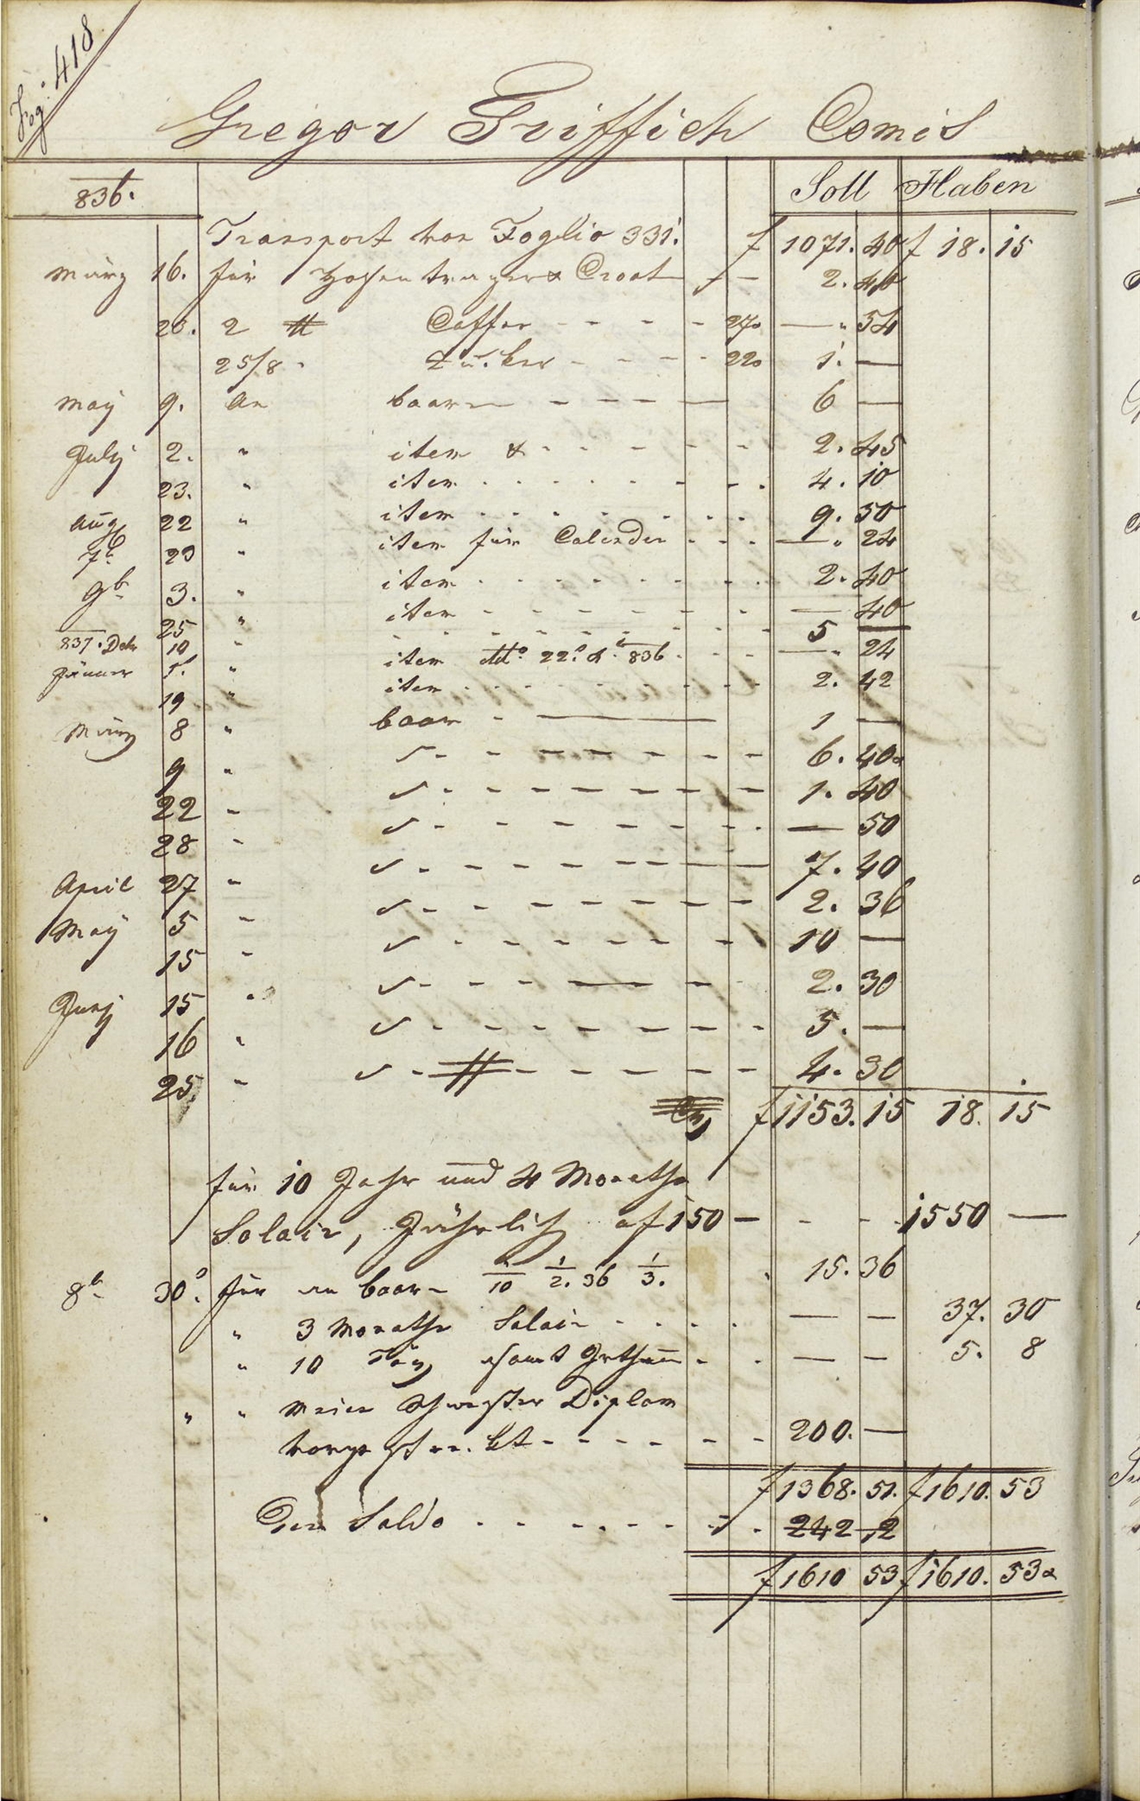 Fog: 418
Gregor Griffich Comis
836. Soll Haben
Transport von Foglio 331. f 1071. 40 f 18. 15
März 16. für Hosentrager & Cravat 2. 40
20. 2 ℔ Caffee - - - - 27 — " 54
25/8 - Zucker - - - - 22 1. —
May 9. An baar - - - - 6 —
July 2. " item & - - - - 2. 45
23. " item - - - - 4. 10
Aug 22 " item - - - - 9. 50
7b 29 " item für Calender - - - — " 24
9b 3. " item - - - - 2. 40
25 " item - - - - — 40
837. Decb 10 " - - - - 5 —
Jänner 1. " item dto 22. 836 - - - — " 24
19 " item - - - - 2. 42
März 8 " baar - 1 —
9 " - - - - 6. 40
22 - - - - 1. 40
28 - - - - — 50
April 27 - - - - 7. 40
May 5 - - - - 2. 36
15 - - - - 10 —
Juny 15 " - - - - 2. 30
16 " - - - - 5. —
25 - - - - 4. 30
f 1153. 15 18. 15
für 10 Jahr und 4 Monathe
Salair, Jährlich a f 150 — - - 1550 —
8b 30. für an baar 1/10 1/2. 36 1/3. 15. 36
" 3 Monathe Salair - - - - — — 37. 30
" 10 Täg - - — — 5. 8
" " Meine Schwester Diplom
- - - - 200. —
f 1368. 51. f 1610. 53
Den Saldo - - - - 242 2
f 1610 53 f 1610. 53